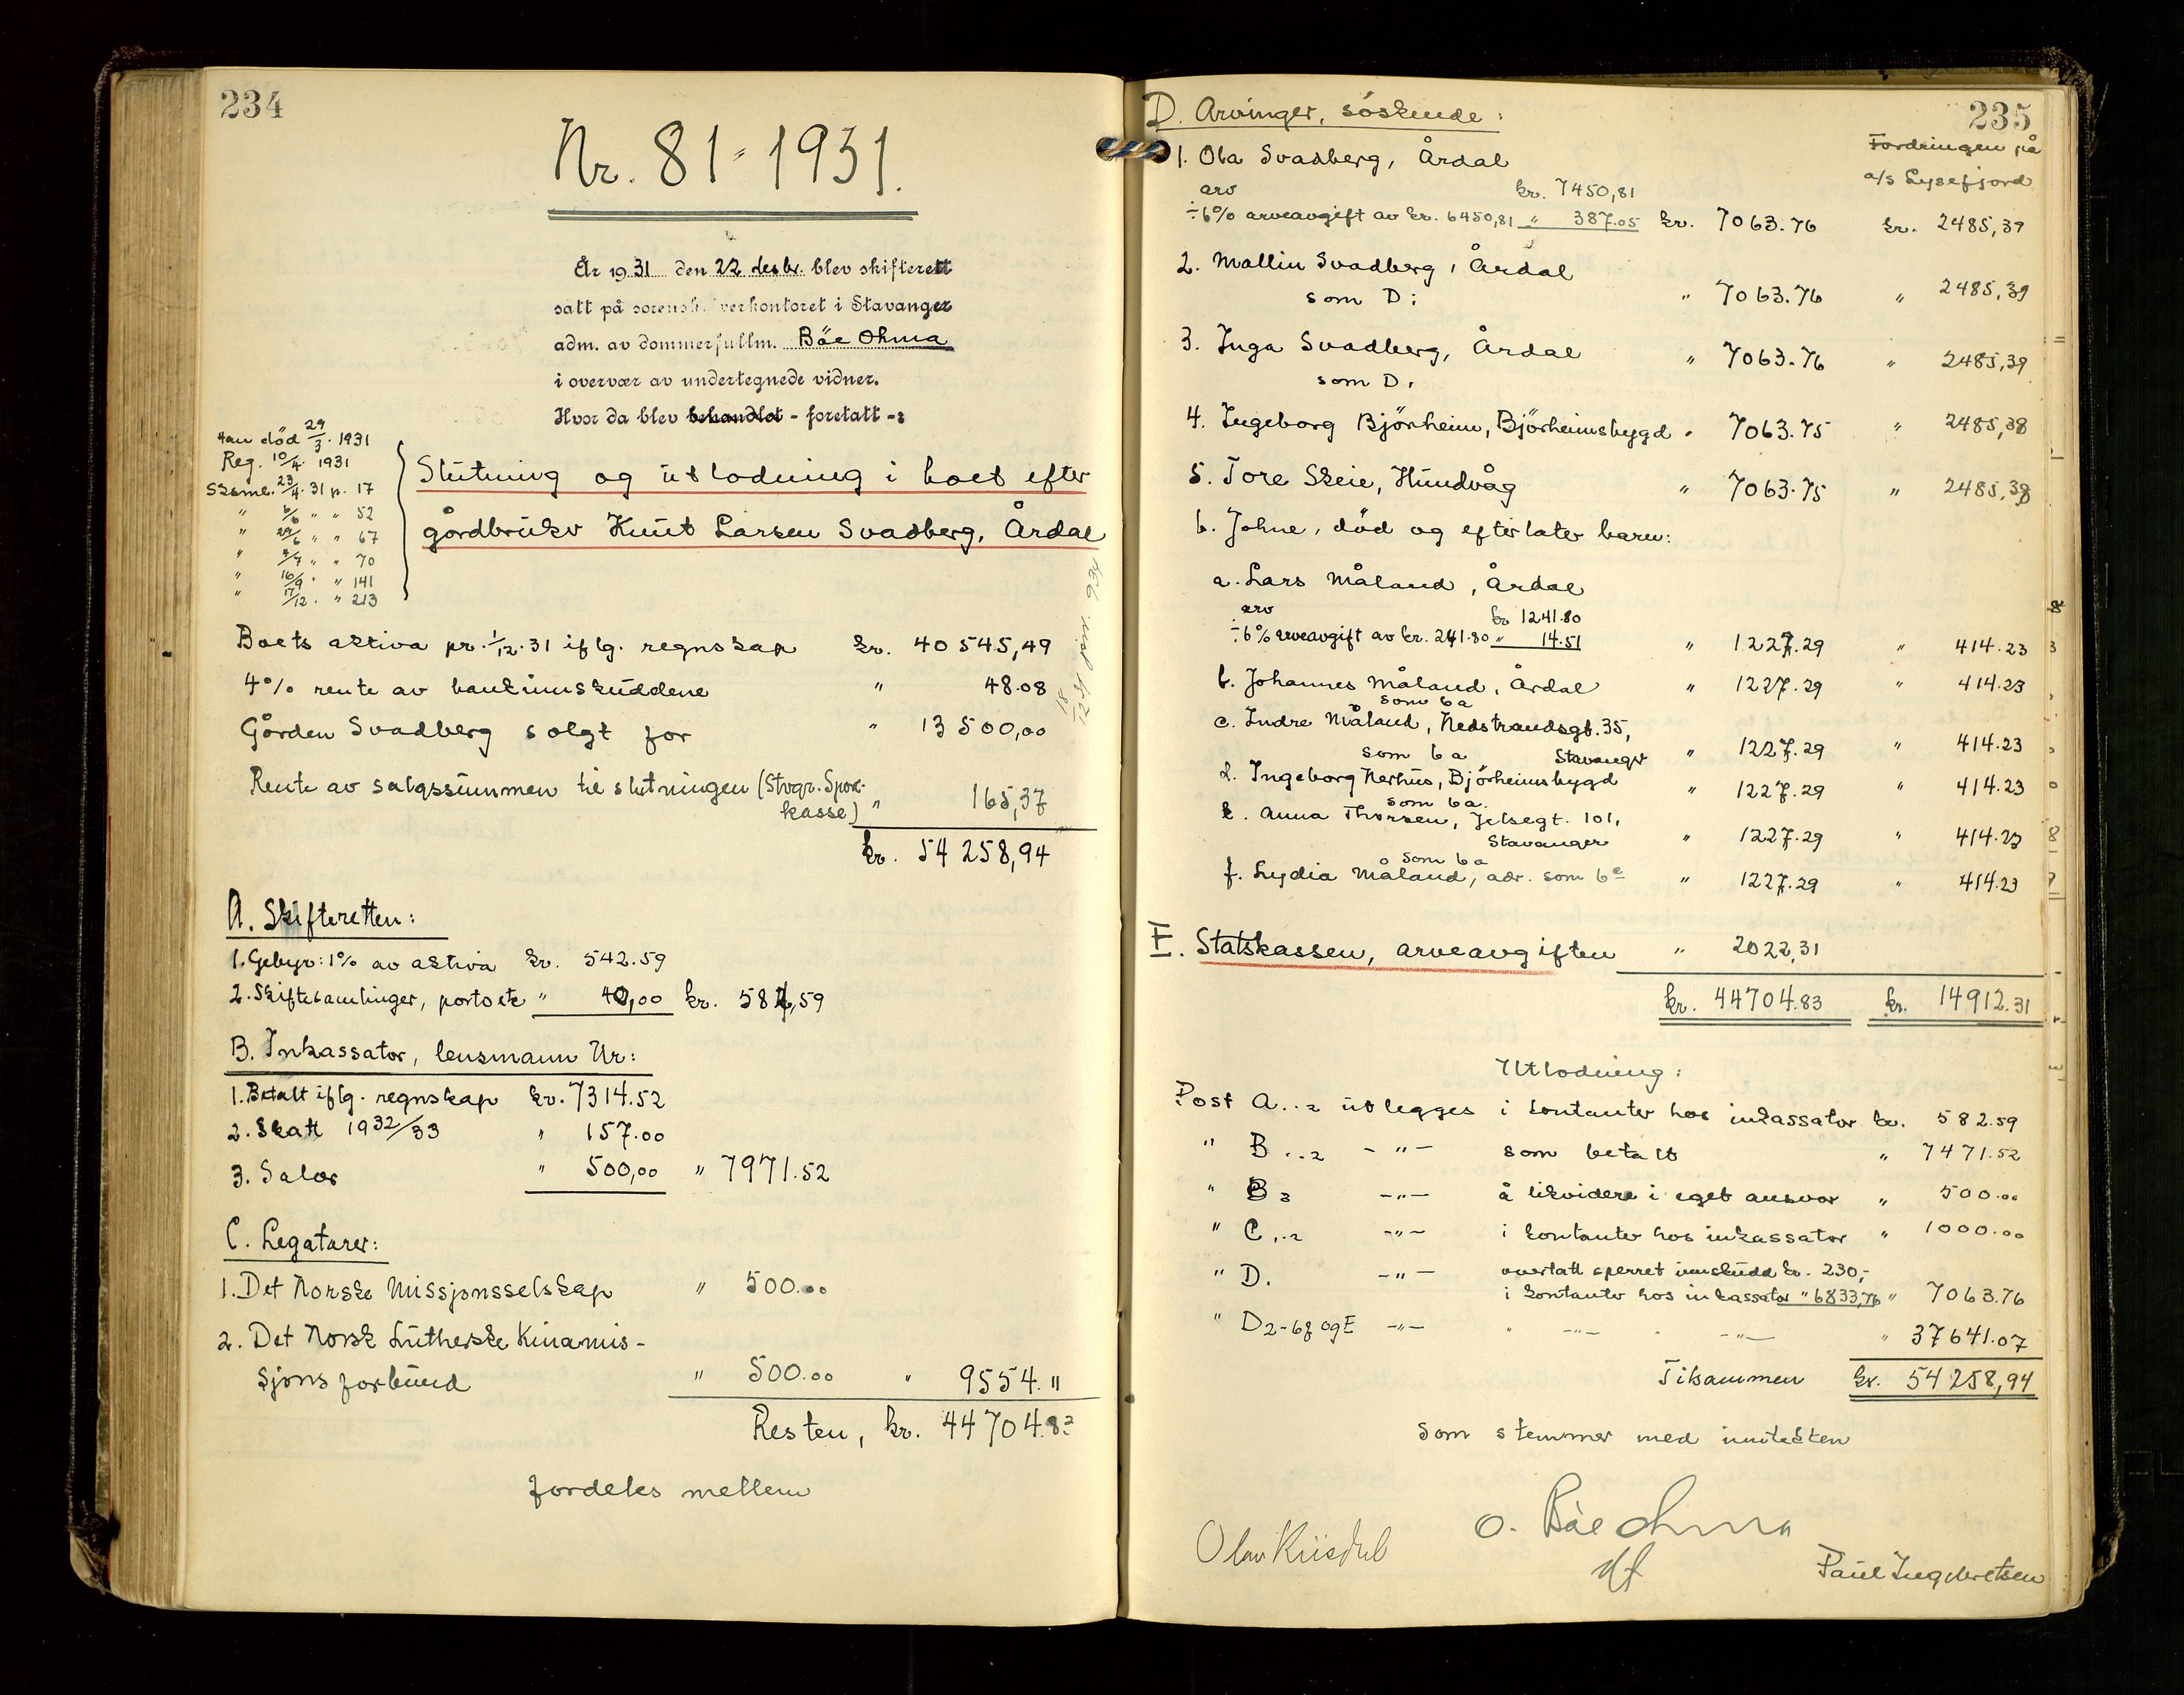 234
Nr. 81 - 1931.
År 1931 den 22 desbr. blev skifterett
satt på sorenskriverkontoret i Stavanger
adm. av dommerfullm. Bäe Ohma
i overvær av undertegnede vidner.
Hvor da blev behandlet - foretatt -:
Han död 29/3. 1931
Reg. 10/4. 1931
Sksml. 23/4. 31 p. 17
" 6/6 " " 52
" 29/6 " " 67
" 4/7 " " 70
" 16/9 " " 141
" 17/12. " 213
Slutning og utlodning i boet efter
gårdbruker Knut Larsen Svadberg, Årdal
Boets aktiva pr. 1/12. 31 iflg. regnskap kr. 40 545,49
4% rente av bankinnskuddene " 48.08
Gården Svadberg solgt for " 13 500,00
Rente av salgssummen til slutningen (Stvgr. Spar-
kasse) " 165,37
kr. 54 258,94
A. Skifteretten:
1. Gebyr: 1% av aktiva kr. 542.59
2. Skiftesamlinger, porto etc " 40,00 kr. 582,59
B. Inkassator, lensmann Ur:
1. Betalt iflg. regnskap kr. 7314.52
2. Skatt 1932/33 " 157.00
3. Salær " 500,00 " 7971.52
C. Legatarer:
1. Det Norske Missjonsselskap " 500.00
2. Det Norsk Lutherske Kinamis-
sjonsforbund " 500.00 " 9554.11
Resten, kr. 44704.83
fordeles mellem
235
D. Arvinger, söskende:
Fordringen på
a/s Lysefjord
1. Ola Svadberg, Årdal
arv kr. 7450,81
÷ 6% arveavgift av kr. 6450,81 " 387.05 kr. 7063.76 kr. 2485,39
2. Mallin Svadberg, Årdal
som D1 " 7063.76 " 2485,39
3. Inga Svadberg, Årdal " 7063.76 " 2485,39
som D1
4. Ingeborg Björheim, Björheimsbygd " 7063.75 " 2485,38
5. Tore Skeie, Hundvåg " 7063.75 " 2485,38
6. Johne, död og efterlater barn:
a. Lars Måland, Årdal
arv kr 1241.80
÷ 6% arveavgift av kr. 241.80 " 14.51 " 1227.29 " 414.23
b. Johannes Måland, Årdal " 1227.29 " 414.23
som 6a
c. Indre Måland, Nedstrandsgt. 35,
som 6a Stavanger " 1227.29 " 414.23
d. Ingeborg Nerhus, Björheimsbygd " 1227.29 " 414.23
som 6a.
e. Anna Thorsen, Jelsegt. 101,
Stavanger " 1227.29 " 414.23
som 6a
f. Lydia Måland, adr. som 6e " 1227.29 " 414.23
E. Statskassen, arveavgiften " 2022,31
kr. 44704.83 kr. 14912.31
Utlodning:
Post A.-2 utlegges i kontanter hos inkassator kr. 582.59
" B.-2 - " - som betalt " 7471.52
" B 3 - " - å likvidere i eget ansvar " 500.00
" C.-2 - " - i kontanter hos inkassator " 1000.00
" D. - " - overtatt sperret innskudd kr. 230,-
i kontanter hos inkassator " 6833,76 " 7063.76
" D2-6f og E - " - " - " - " - " - " 37641.07
Tilsammen kr. 54 258,94
som stemmer med inntekten
O. Bäe Ohma
df
Paul Ingebretsen